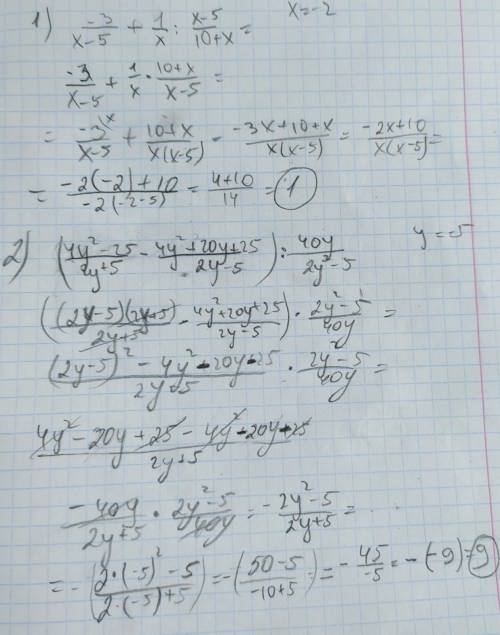 1) -3/(x-5) + 1/x : (x-5)/(10+x) = x=-2
-3/(x-5) + 1/x · (10+x)/(x-5) =
= -3^(x)/(x-5) + (10+x)/(x(x-5)) - (-3x+10+x)/(x(x-5)) = (-2x+10)/(x(x-5)) =
= (-2(-2)+10)/(-2(-2-5)) = (4+10)/14 = 1
2) ((4y²-25)/(2y+5) - (4y²+20y+25)/(2y-5)) : 40y/(2y²-5) y=-5
(((2y-5)(2y+5))/(2y+5) - (4y²+20y+25)/(2y-5)) · (2y²-5)/40y =
((2y-5)² - 4y² - 20y - 25)/(2y+5) · (2y-5)/40y =
(4y² - 20y + 25 - 4y² - 20y - 25)/(2y+5)
-40y/(2y+5) · (2y²-5)/40y = -(2y²-5)/(2y+5) =
= -((2·(-5)²-5)/(2·(-5)+5)) = -((50-5)/(-10+5)) = -45/-5 = -(-9) = 9